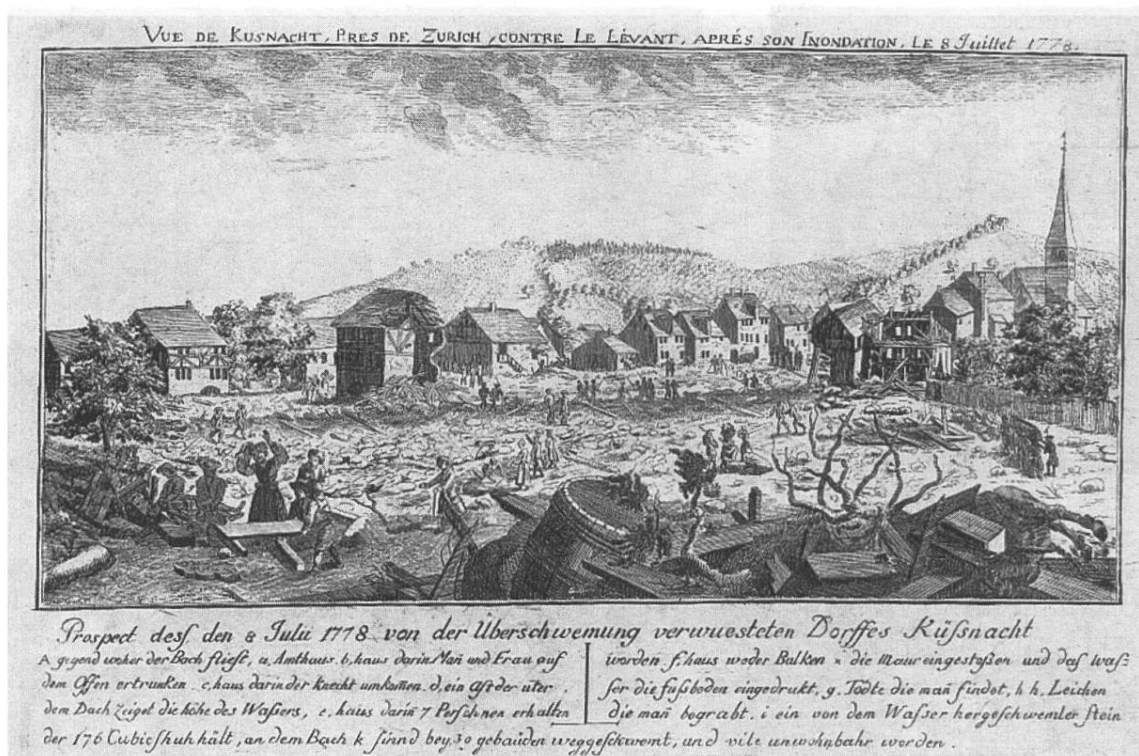 VUE DE KUSNACHT, PRES DE ZURICH, CONTRE LE LEVANT, APRÉS SON INONDATION, LE 8 Juillet 1778.
Prospect dess den 8 Julii 1778 von der Überschwemung verwuesteten Dorffes Küssnacht
A gegend woher der Bach fliest, a, Amthaus. b, haus darin Man̄ und Frau auf
dem Offen ertrunken. c, haus darin der knecht umkom̄en. d, ein Ast der unter
dem Dach zeiget die höhe des Wassers, e, haus darin̄ 7 Persohnen erhalten
worden f. haus wo der Balken x die Maur eingestossen und das was=
ser die fussboden eingedrukt, g. Todte die man̄ findet, h h. Leichen
die man̄ begrabt. i ein von dem Wasser hergeschwemter stein
der 176 Cubicshuh hält, an dem Bach k sinnd bey 30 gebäuden weggeschwemt, und vile unwohnbahr worden.